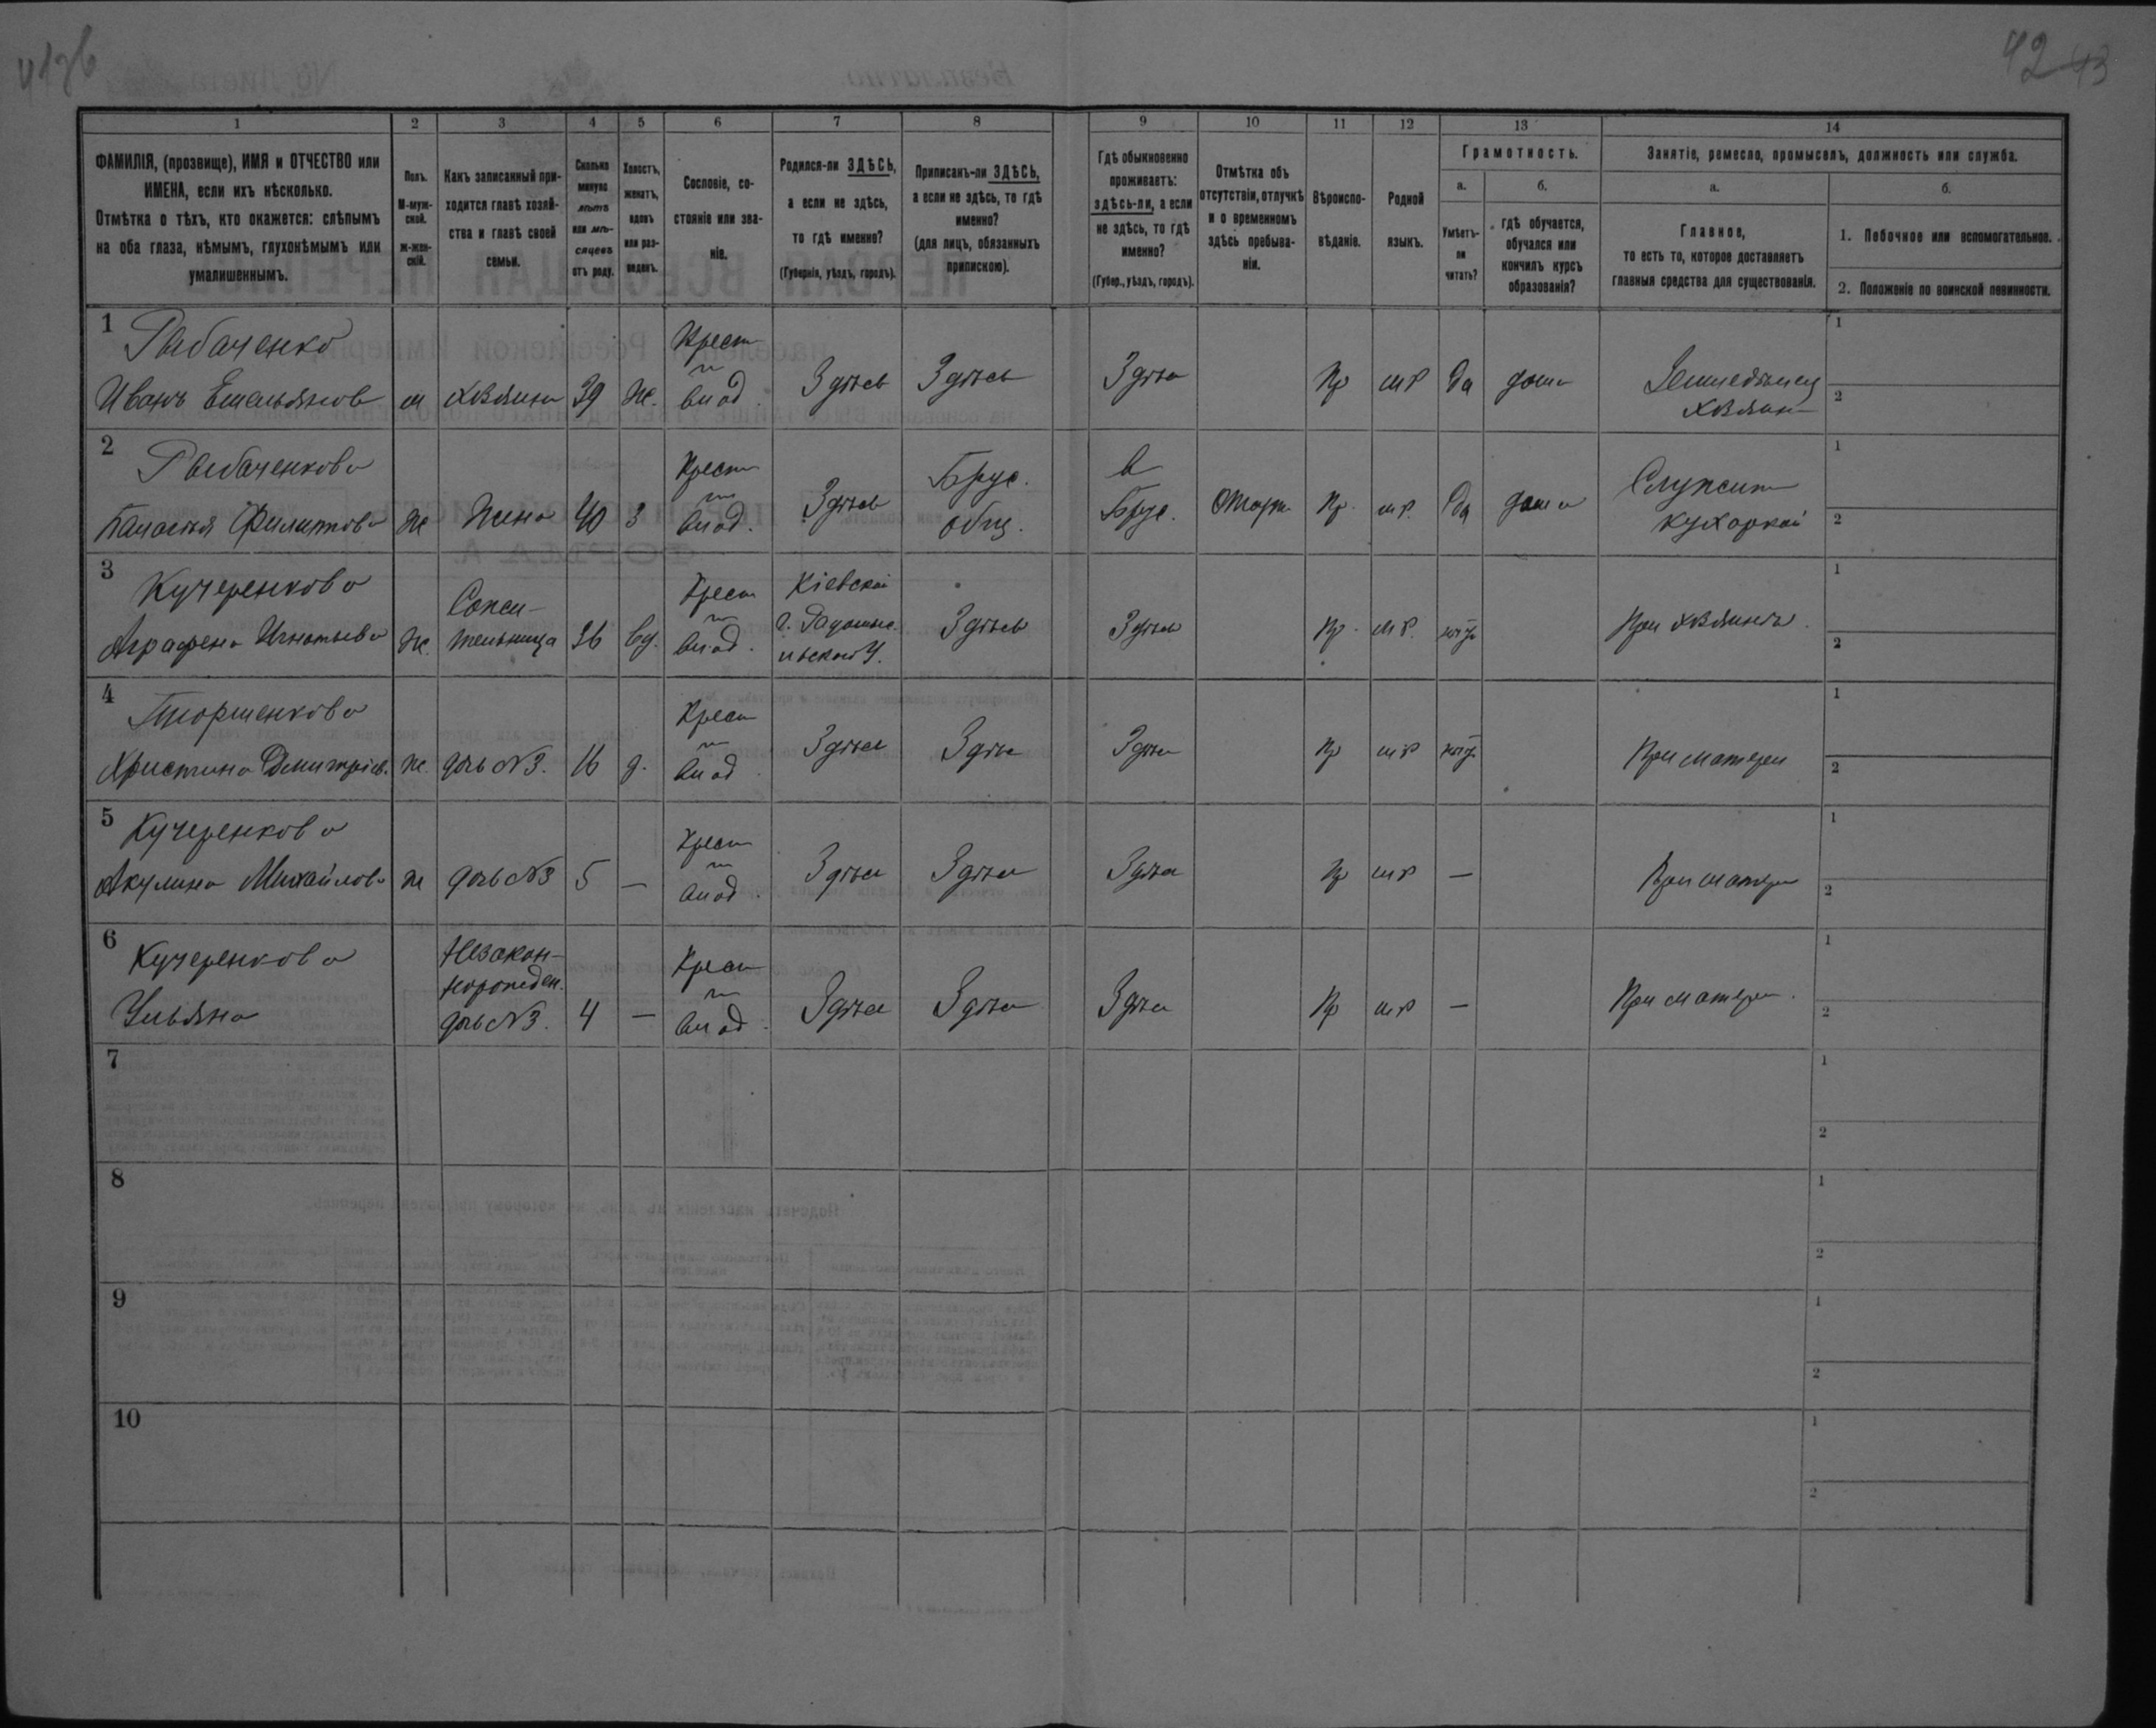 42 43
1 2 3 4 5 6 7 8 9 10 11 12 13 14
ФАМИЛІЯ, (прозвище), ИМЯ и ОТЧЕСТВО или
ИМЕНА, если ихъ нѣсколько.
Отмѣтка о тѣхъ, кто окажется: слѣпымъ
на оба глаза, нѣмымъ, глухонѣмымъ или
умалишеннымъ.
Полъ.
М-муж-
ской.
ж-жен-
скій.
Какъ записанный при-
ходится главѣ хозяй-
ства и главѣ своей
семьи.
Сколько
минуло
лѣтъ
или мѣ-
сяцевъ
отъ роду.
Холостъ,
женатъ,
вдовъ
или раз-
веденъ.
Сословіе, со-
стояніе или зва-
ніе.
Родился-ли ЗДѢСЬ,
а если не здѣсь,
то гдѣ именно?
(Губернія, уѣздъ, городъ).
Приписанъ-ли ЗДѢСЬ,
а если не здѣсь, то гдѣ
именно?
(для лицъ, обязанныхъ
припискою).
Гдѣ обыкновенно
проживаетъ:
здѣсь-ли, а если
не здѣсь, то гдѣ
именно?
(Губер., уѣздъ, городъ).
Отмѣтка объ
отсутствіи, отлучкѣ
и о временномъ
здѣсь пребыва-
ніи.
Вѣроиспо-
вѣданіе.
Родной
языкъ.
Грамотность.
а.
Умѣетъ-
ли
читать?
б.
гдѣ обучается,
обучался или
кончилъ курсъ
образованія?
Занятіе, ремесло, промыселъ, должность или служба.
а.
Главное,
то есть то, которое доставляетъ
главныя средства для существованія.
б.
1. Побочное или вспомогательное.
2. Положеніе по воинской повинности.
1 Рыбаченко Крест 1
Иванъ Емельяновъ м хозяинъ 39 ж. Здѣсь Здѣсь Здѣсь пр мр да дома Земледѣлец
хозяин 2
2 Рыбаченкова Крест Брус. в 1
Филиппова ж Жена 40 З Здѣсь общ. Брус. пр. мр. да дома Служит
кухаркой 2
3 Кучеренкова Сожи- Крест Кіевской 1
Аграфена Игнатьева ж. тельница 36 вд. Здѣсь Здѣсь пр. мр. При хозяинѣ. 2
4 Крест 1
Христина Дмитріев. ж. дочь №3. 16 д. Здѣсь Здѣсь Здѣсь пр мр При матери 2
5 Кучеренкова Крест 1
Акулина Михайлова ж дочь №3 5 — Здѣсь Здѣсь Здѣсь пр мр — При матери 2
6 Кучеренкова Незакон- Крест 1
норожден.
Ульяна дочь №3. 4 — Здѣсь Здѣсь Здѣсь пр мр — При матери. 2
7 1
2
8 1
2
9 1
2
10 1
2